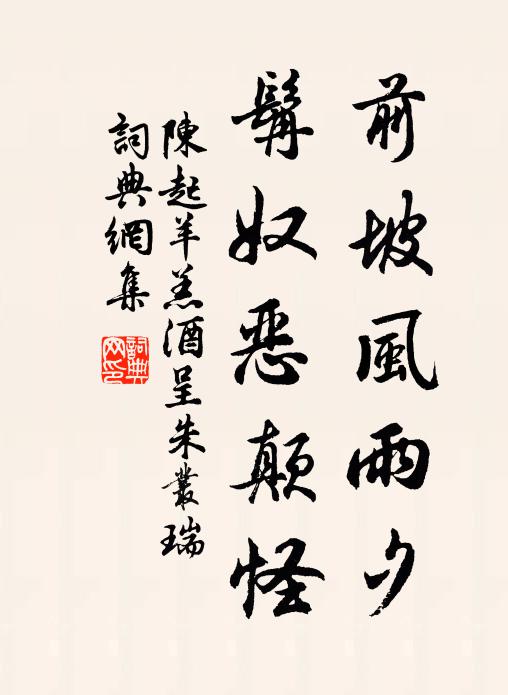 前坡風雨夕
髯奴惡顛怪
陳起羊羔酒呈朱叢瑞
詞典網集
詞典網印